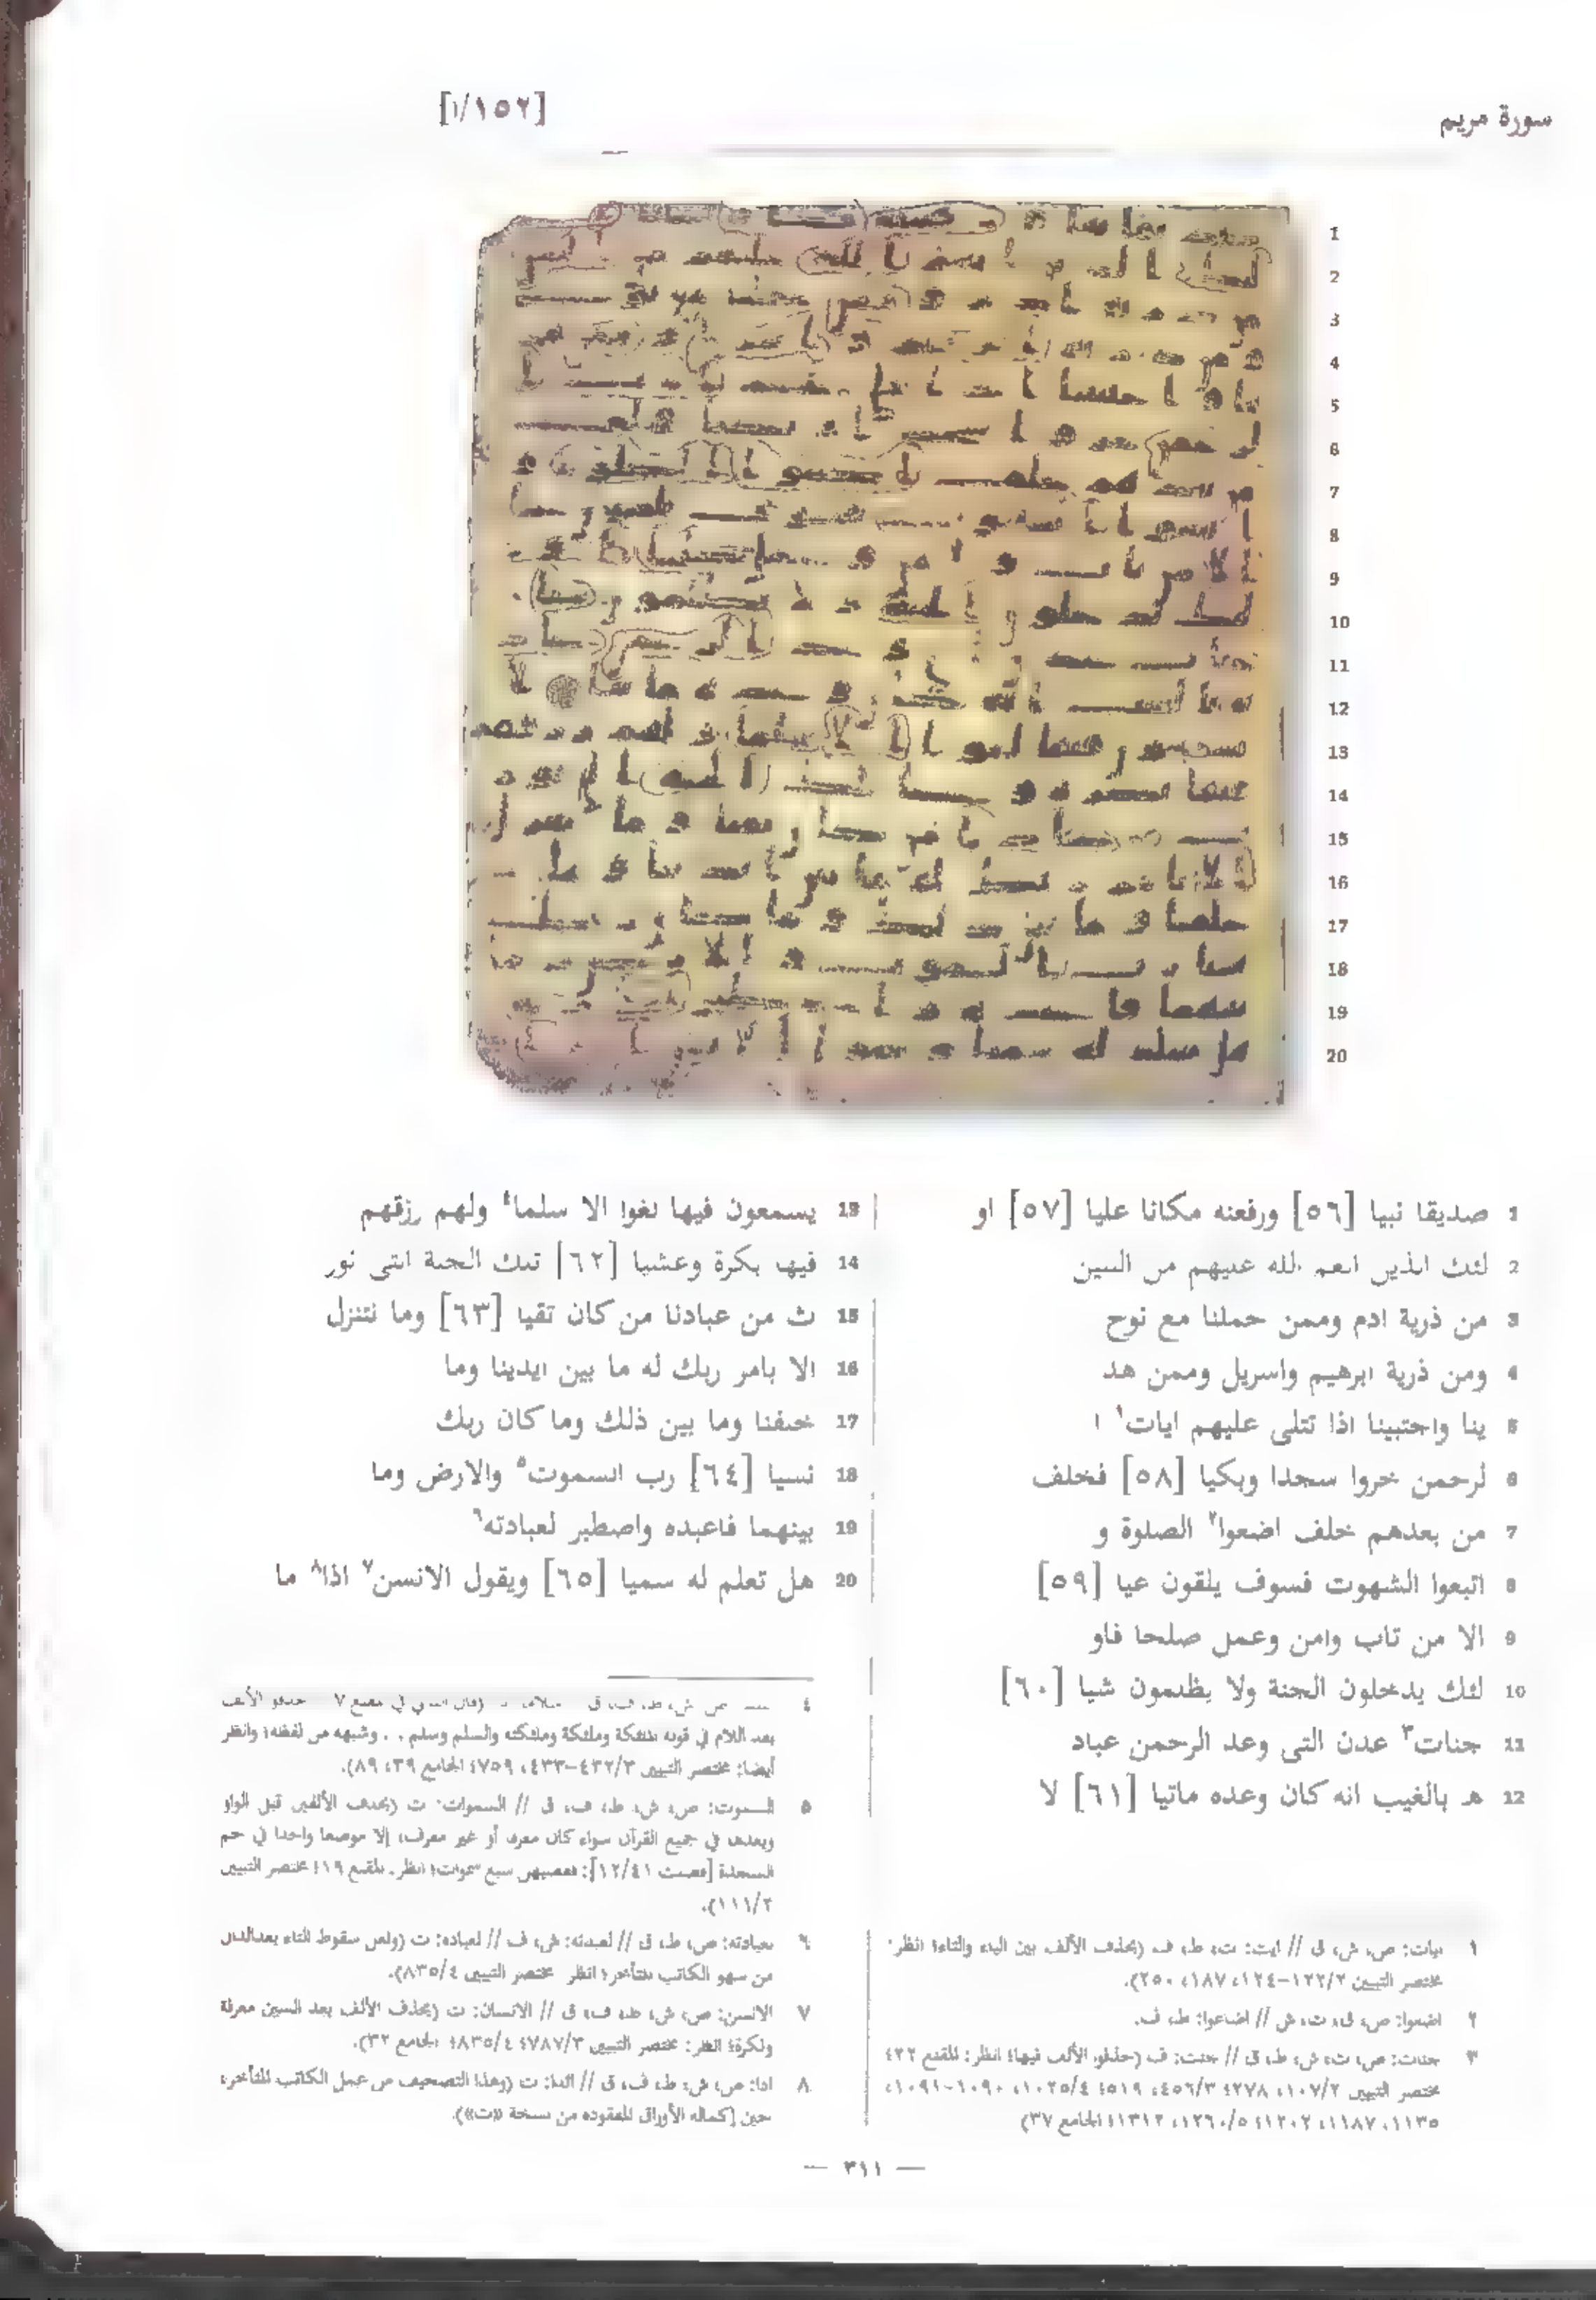 سورة مريم
[١٥٢/ا]
1
2
3
4
5
6
7
8
9
10
11
12
13
14
15
16
17
18
19
20
1 صديقا نبيا [٥٦] ورفعنه مكانا عليا [٥٧] او
2 لئك الذين انعم الله عليهم من النبين
3 من ذرية ادم وممن حملنا مع نوح
4 ومن ذرية ابرهيم واسريل وممن هد
5 ينا واجتبينا اذا تتلى عليهم ايات١ ا
6 لرحمن خروا سجدا وبكيا [٥٨] فخلف
7 من بعدهم خلف اضعوا٢ الصلوة و
8 اتبعوا الشهوت فسوف يلقون غيا [٥٩]
9 الا من تاب وامن وعمل صلحا فاو
10 لئك يدخلون الجنة ولا يظلمون شيا [٦٠]
11 جنات٣ عدن التى وعد الرحمن عباد
12 ه بالغيب انه كان وعده ماتيا [٦١] لا
13 يسمعون فيها لغوا الا سلما٤ ولهم رزقهم
14 فيها بكرة وعشيا [٦٢] تلك الجنة التى نور
15 ث من عبادنا من كان تقيا [٦٣] وما نتنزل
16 الا بامر ربك له ما بين ايدينا وما
17 خلفنا وما بين ذلك وما كان ربك
18 نسيا [٦٤] رب السموت٥ والارض وما
19 بينهما فاعبده واصطبر لعبادته٦
20 هل تعلم له سميا [٦٥] ويقول الانسن٧ اذا٨ ما
١ ايات: ص، ش، ق // ايت: ت، ط، ف (بحذف الألف بين الياء والتاء؛ انظر:
مختصر التبيين ١٢٢/٢-١٢٤، ١٨٧، ٢٥٠).
٢ اضعوا: ص، ق، ت، ش // اضاعوا: ط، ف.
٣ جنات: ص، ت، ش، ط، ق // جنت: ف (حذفو الألف فيها؛ انظر: المقنع ٢٢،
مختصر التبيين ١٠٧/٢، ٢٧٨؛ ٤٥٦/٣، ٥١٩؛ ١٠٢٥/٤، ١٠٩٠-١٠٩١،
١١٣٥، ١١٨٧، ١٢٠٢؛ ١٢٦٠/٥، ١٣١٢؛ الجامع ٣٧)
٤ ص، ش، ط، ف، ق (قال الداني في مقنع ٧ حذفو الألف
بعد اللام في قوله الملئكة وملئكة وملئكته والسلم وسلم . . وشبهه من لفظه؛ وانظر
أيضا: مختصر التبيين ٤٣٢/٣-٤٣٣، ٧٥٩؛ الجامع ٣٩، ٨٩).
٥ السموت: ص، ش، ط، ف، ق // السموات: ت (بحذف الألفين قبل الواو
وبعدها في جميع القرآن سواء كان معرف أو غير معرف، إلا موضعا واحدا في حم
السجدة [فصلت ١٢/٤١]: فقضيهن سبع سموات؛ انظر. المقنع ١٩؛ مختصر التبيين
١١١/٢).
٦ لعبادته: ص، ط، ق // لعبدته: ش، ف // لعباده: ت (ولعل سقوط التاء بعد الدال
من سهو الكاتب المتأخر؛ انظر مختصر التبيين ٨٣٥/٤).
٧ الانسن: ص، ش، ط، ف، ق // الانسان: ت (بحذف الألف بعد السين معرفة
ونكرة؛ انظر: مختصر التبيين ٧٨٧/٣؛ ٨٣٥/٤؛ الجامع ٣٢).
٨ اذا: ص، ش، ط، ف، ق // ائذا: ت (وهذا التصحيف من عمل الكاتب المتأخر،
حين إكماله الأوراق المفقوده من نسخة «ت»).
— ٣١١ —